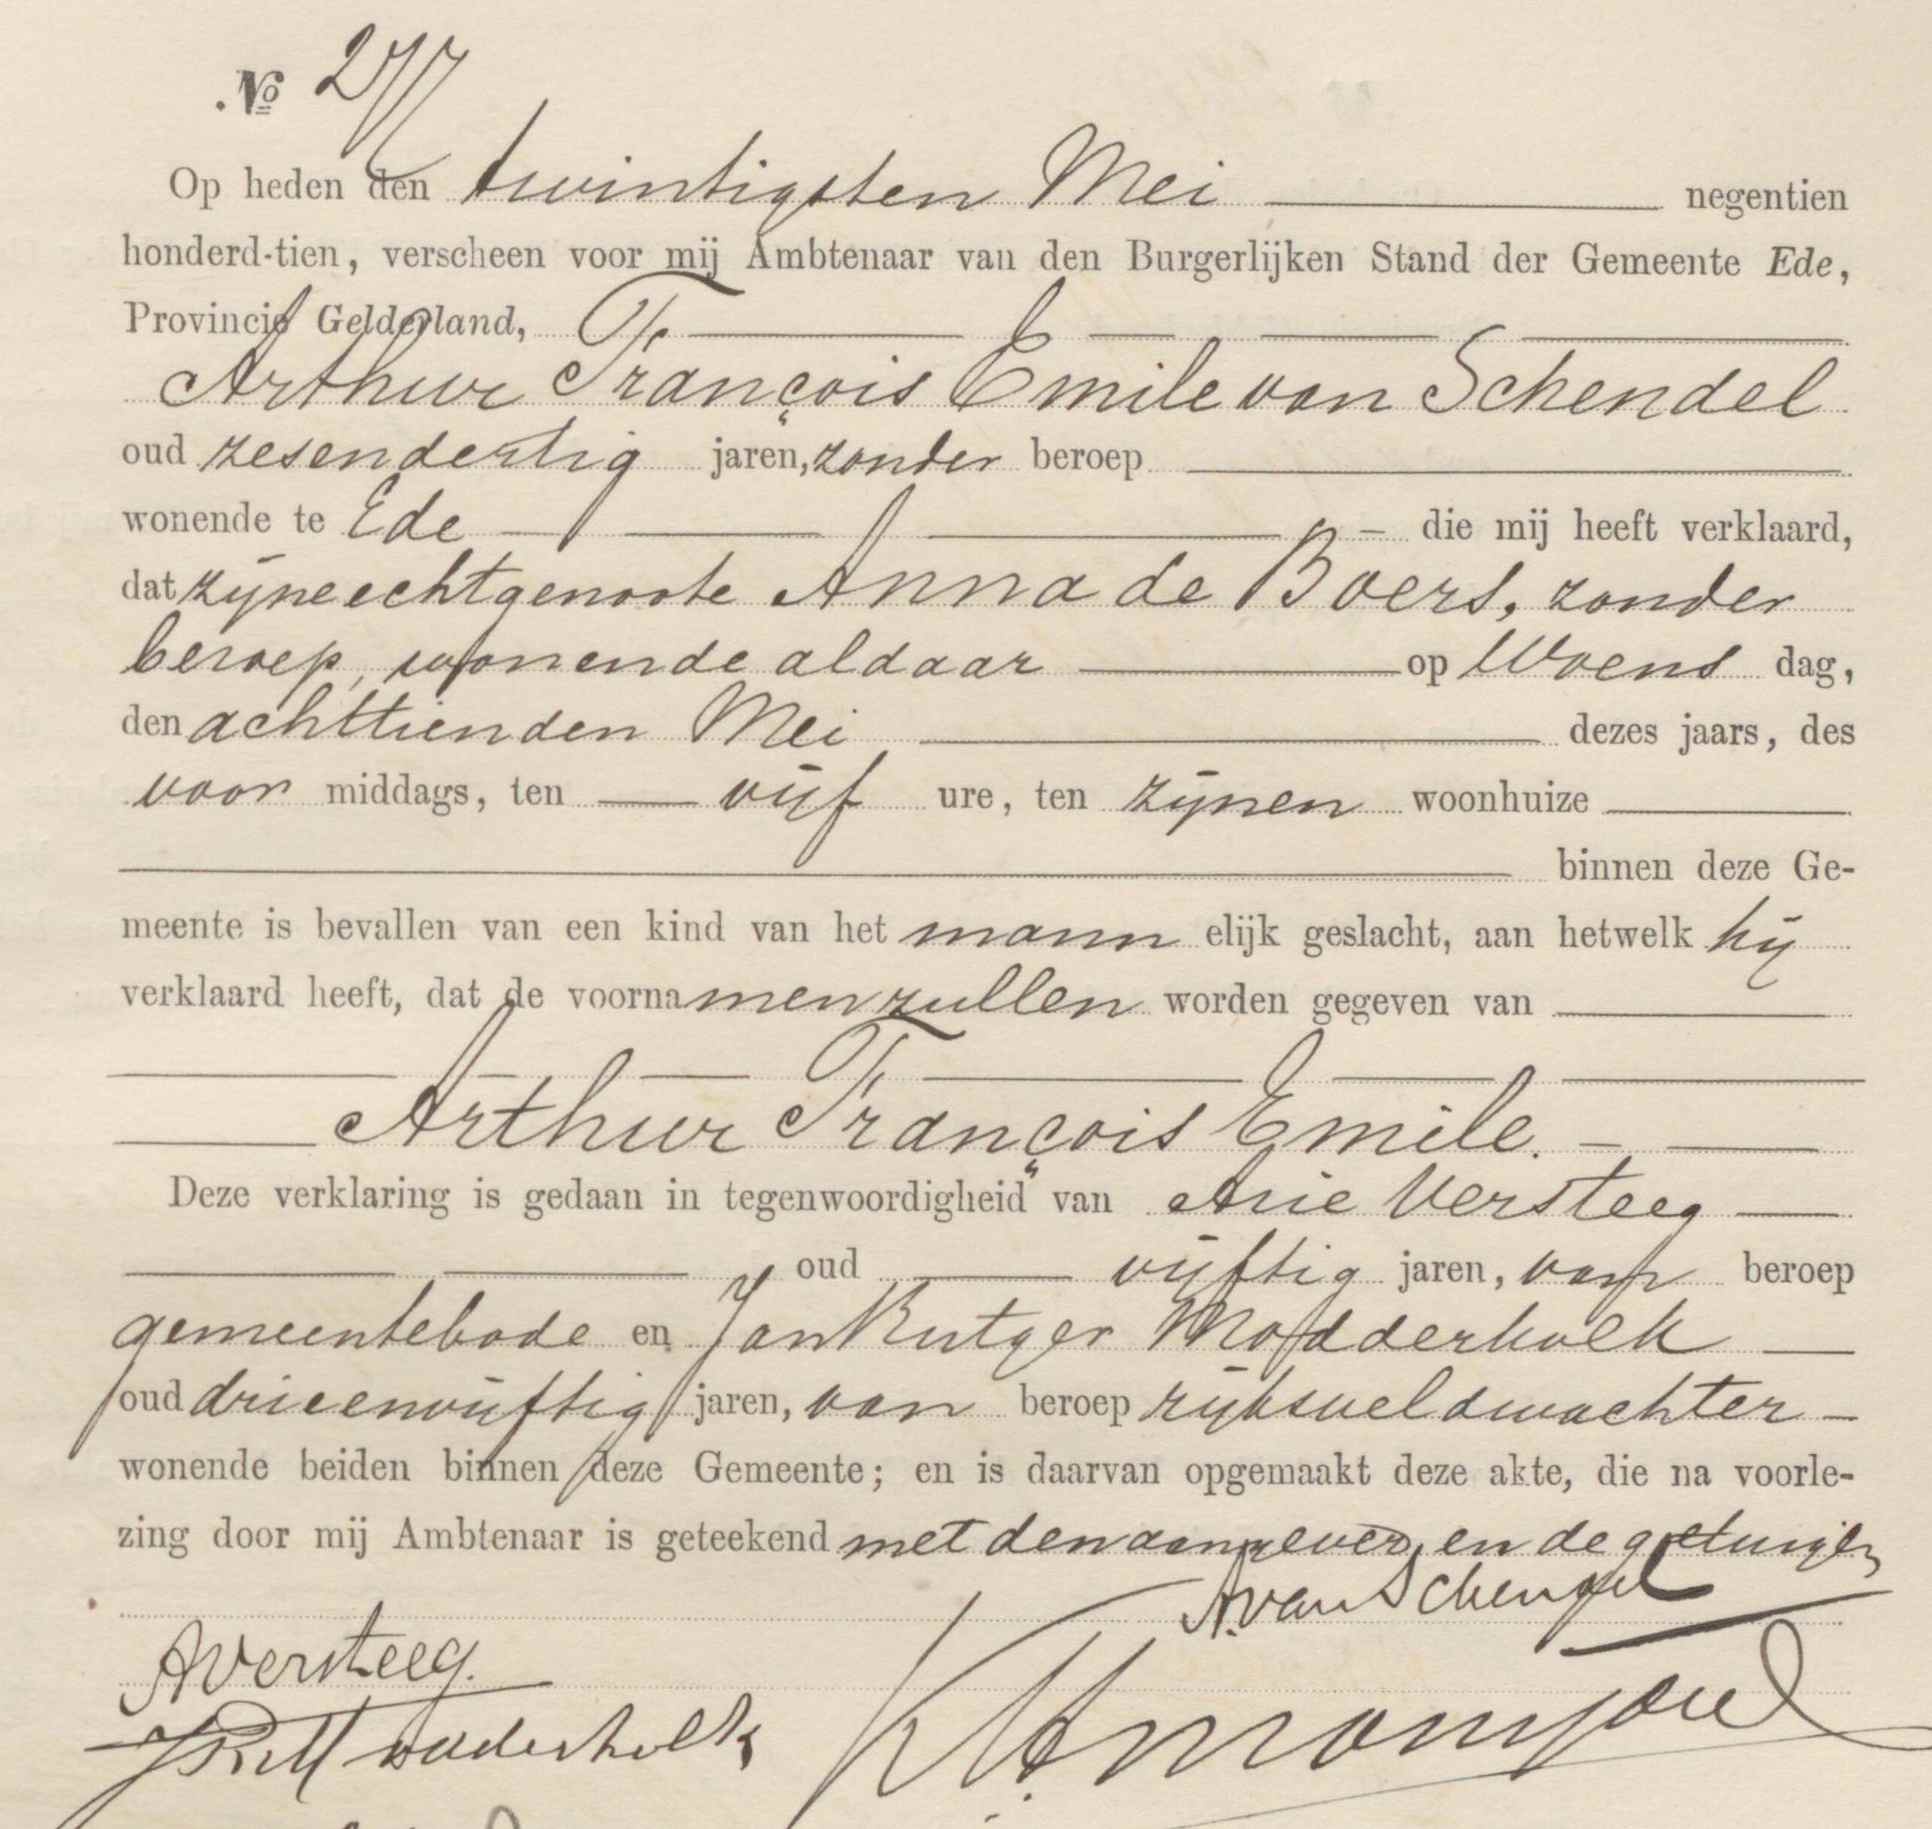 No 277
Op heden den twintigsten Mei negentien
honderd-tien, verscheen voor mij Ambtenaar van den Burgerlijken Stand der Gemeente Ede,
Provincie Gelderland,
Arthur François Emile van Schendel
oud zesendertig jaren, zonder beroep
wonende te Ede die mij heeft verklaard,
dat zijne echtgenoote Anna de Boers, zonder
beroep, wonende aldaar op Woens dag,
den achttienden Mei dezes jaars, des
voor middags, ten vijf ure, ten zijnen woonhuize
binnen deze Ge-
meente is bevallen van een kind van het mann elijk geslacht, aan hetwelk hij
verklaard heeft, dat de voornamen zullen worden gegeven van
Arthur François Emile.
Deze verklaring is gedaan in tegenwoordigheid van Arie Versteeg
oud vijftig jaren, van beroep
gemeentebode en Jan Rutger Modderkolk
oud drieenvijftig jaren, van beroep rijksveldwachter
wonende beiden binnen deze Gemeente; en is daarvan opgemaakt deze akte, die na voorle-
zing door mij Ambtenaar is geteekend met den aangever en de getuigen
A. van Schendel
A Versteeg.
JR Modderkolk